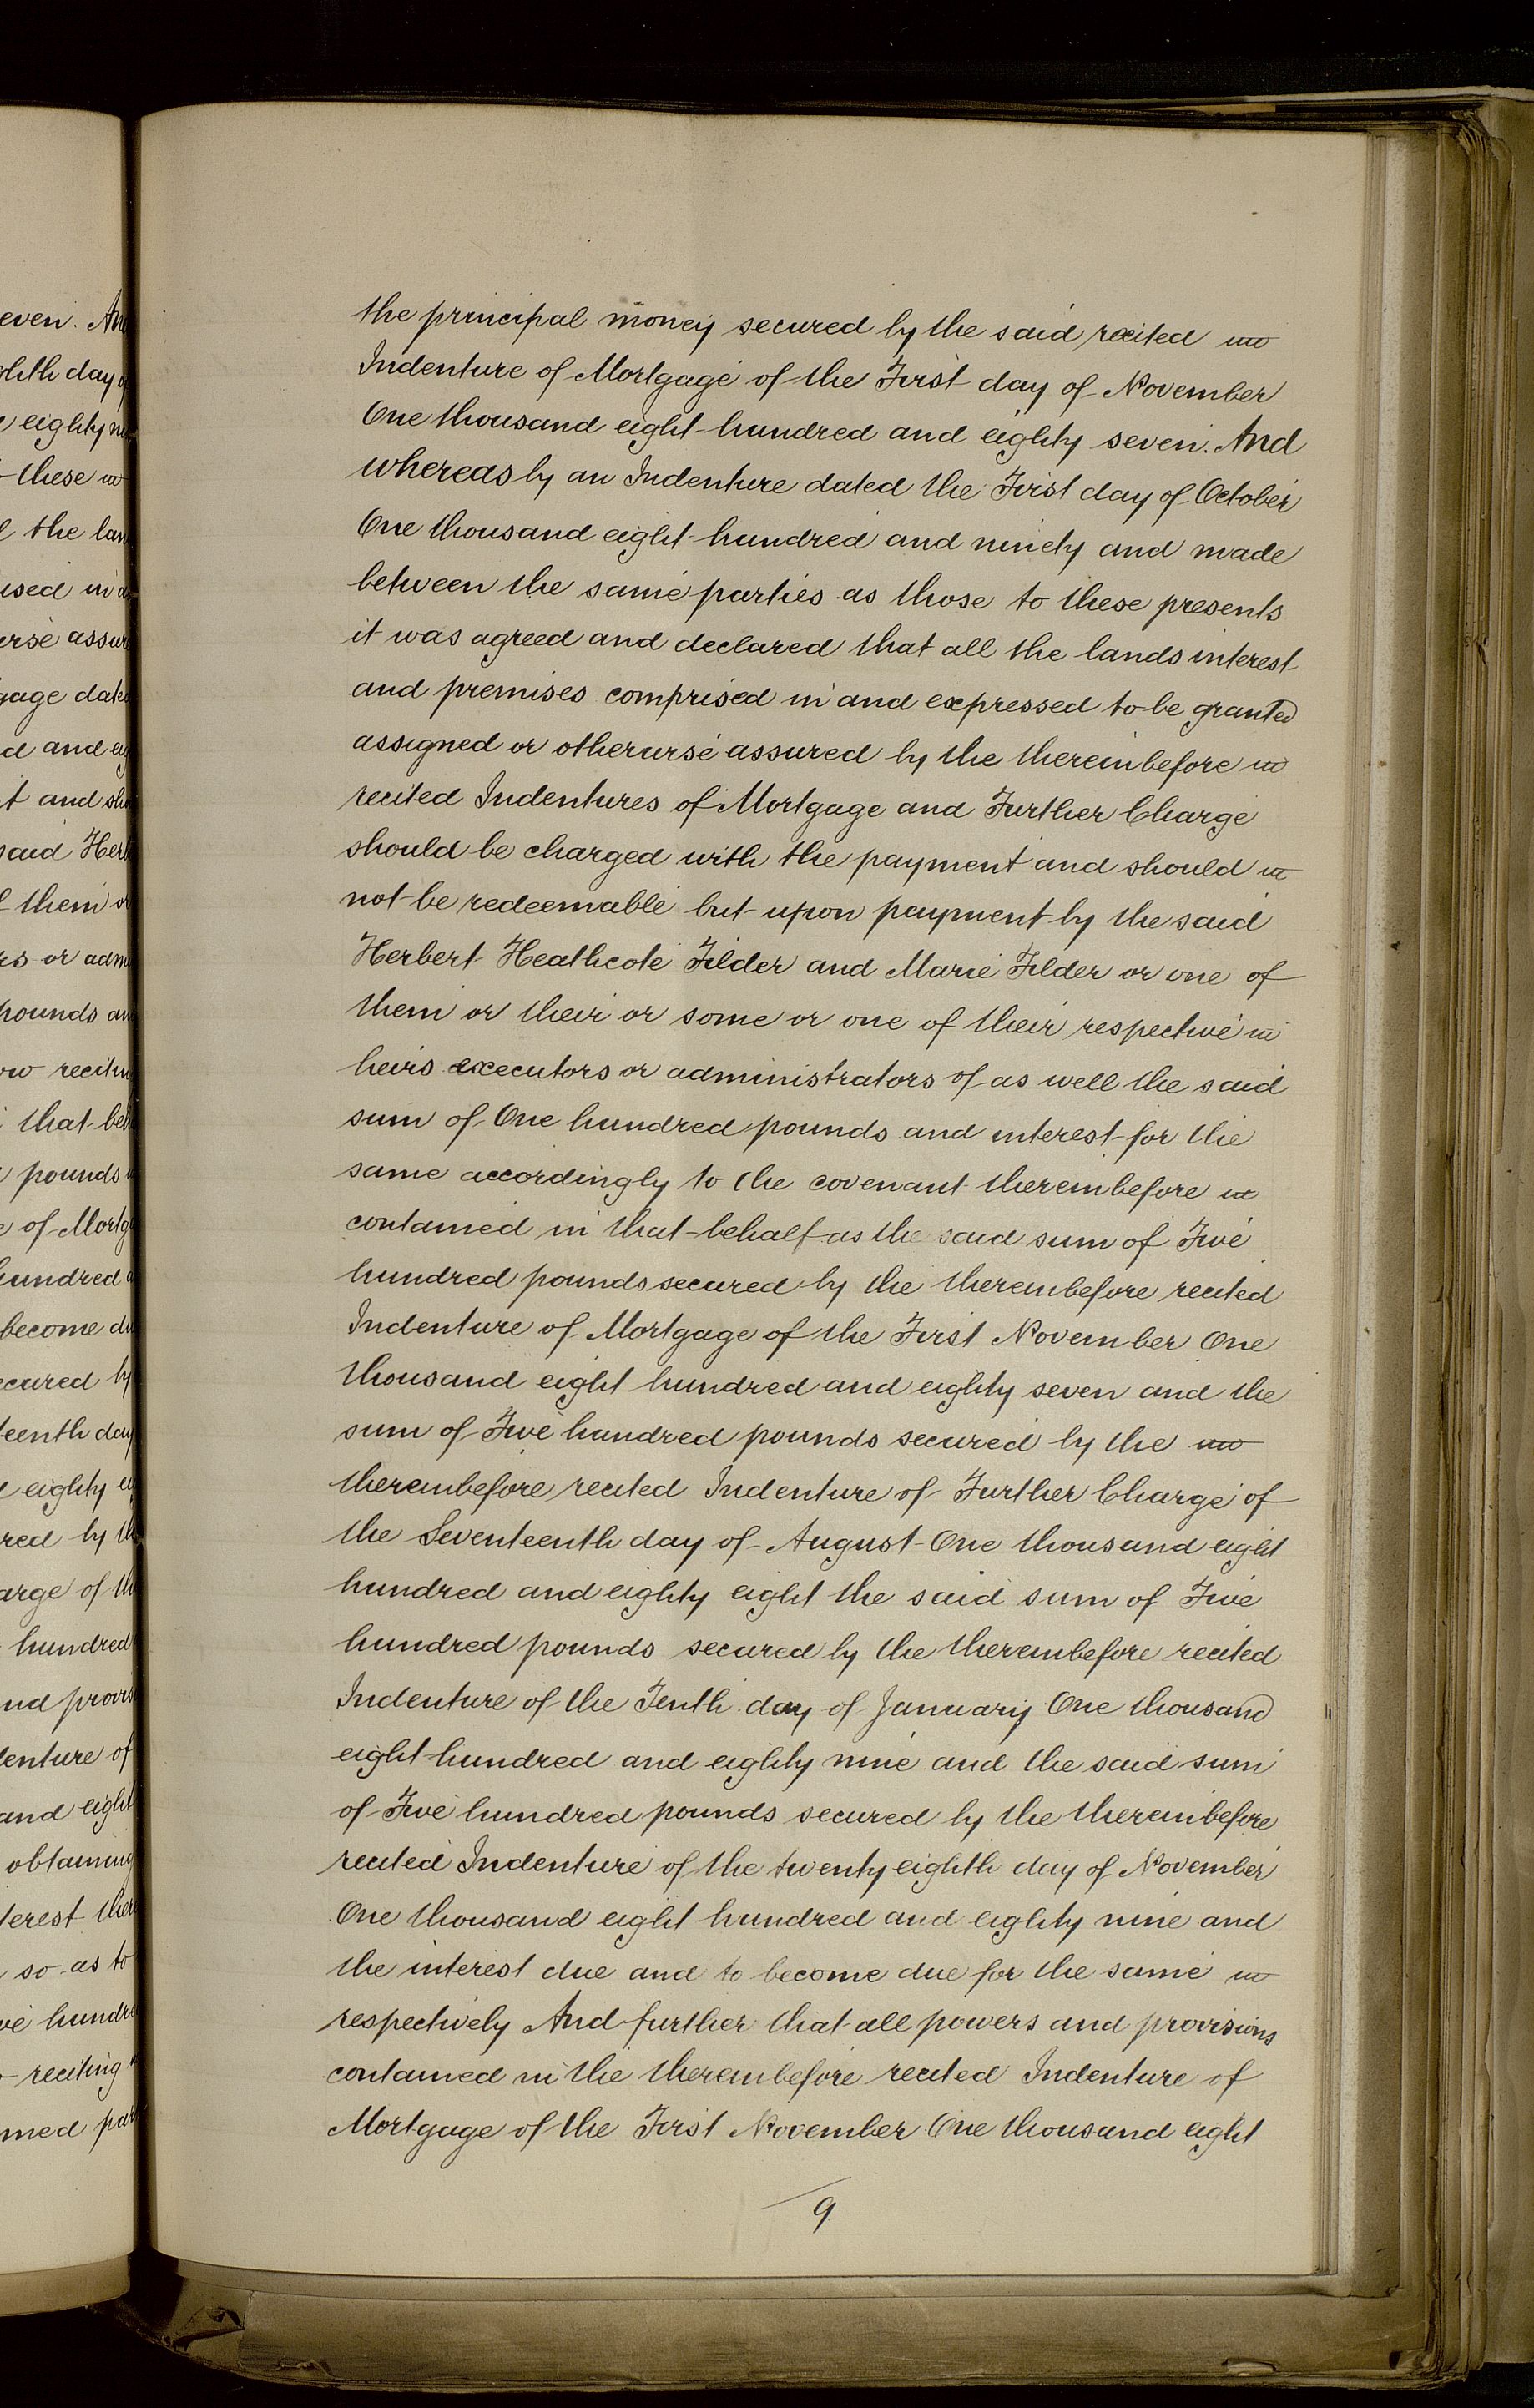 the principal money secured by the said recited
Indenture of Mortgage of the First day of November
One thousand eight hundred and eighty seven. And
whereas by an Indenture dated the First day of October
One thousand eight hundred and ninety and made
between the same parties as those to these presents
it was agreed and declared that all the lands interest
and premises comprised in and expressed to be granted
assigned or otherwise assured by the thereinbefore
recited Indentures of Mortgage and Further Charge
should be charged with the payment and should
not be redeemable but upon payment by the said
Herbert Heathcote Filder and Marie Filder or one of
them or their or some or one of their respective
heirs executors or administrators of as well the said
sum of One hundred pounds and interest for the
same accordingly to the covenant thereinbefore
contained in that behalf as the said sum of Five
hundred pounds secured by the thereinbefore recited
Indenture of Mortgage of the First November One
thousand eight hundred and eighty seven and the
sum of Five hundred pounds secured by the
thereinbefore recited Indenture of Further Charge of
the Seventeenth day of August One thousand eight
hundred and eighty eight the said sum of Five
hundred pounds secured by the thereinbefore recited
Indenture of the Tenth day of January One thousand
eight hundred and eighty nine and the said sum
of Five hundred pounds secured by the thereinbefore
recited Indenture of the twenty eighth day of November
One thousand eight hundred and eighty nine and
the interest due and to become due for the same
respectively And further that all powers and provisions
contained in the thereinbefore recited Indenture of
Mortgage of the First November One thousand eight
9